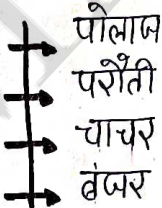 पोलाज
परौती
चाचर
बंजर